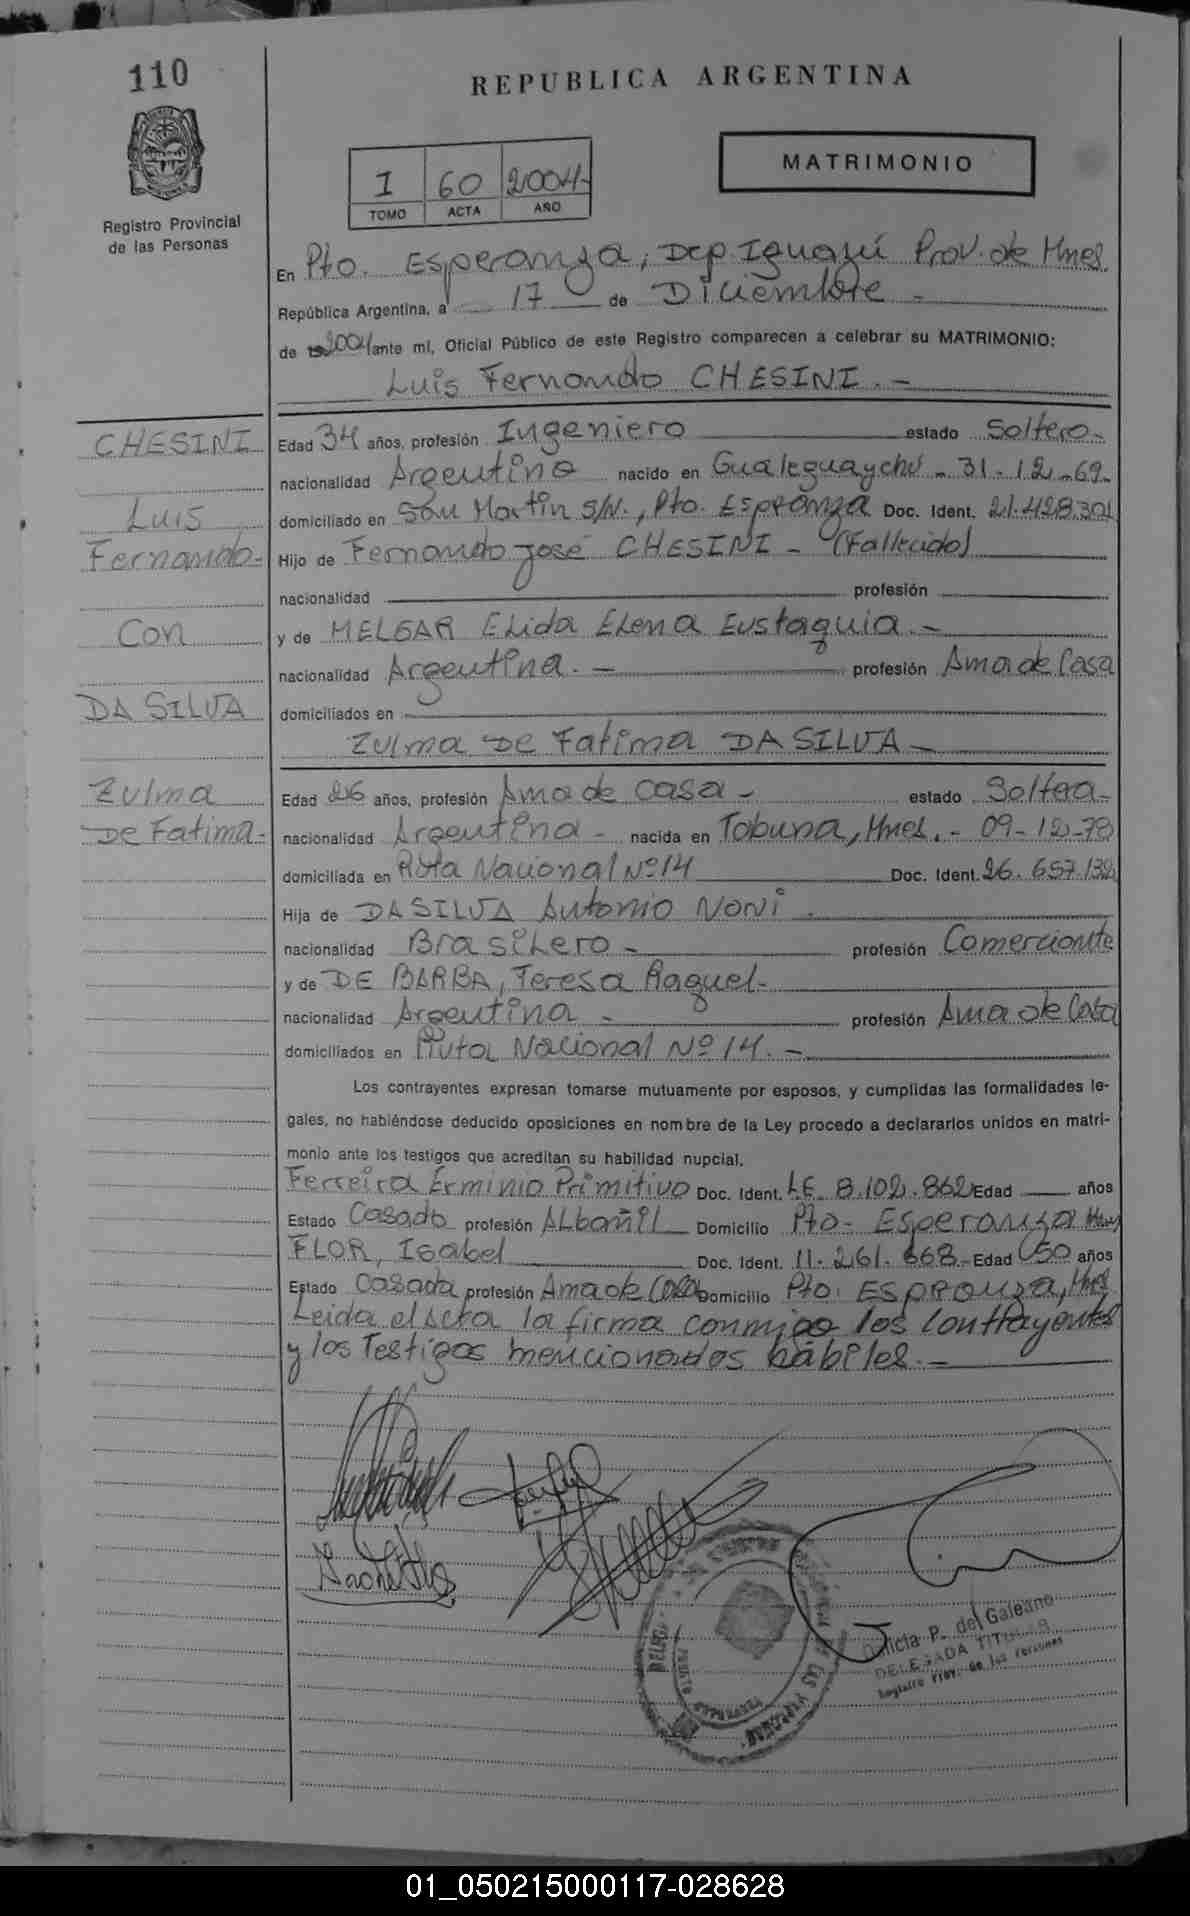 110
REPUBLICA ARGENTINA
Registro Provincial
de las Personas
I 60 2004-
TOMO ACTA AÑO
MATRIMONIO
En Pto. Esperanza, Dep. Iguazú Prov. de Mnes.
República Argentina, a 17 de Diciembre -
de 2004 ante mí, Oficial Público de este Registro comparecen a celebrar su MATRIMONIO:
Luis Fernando CHESINI. -
CHESINI
Luis
Fernando-
Con
DA SILVA
Zulma
De Fatima-
Edad 34 años, profesión Ingeniero estado Soltero-
nacionalidad Argentino nacido en Gualeguaychú - 31-12-69-
domiciliado en San Martin S/N., Pto. Esperanza Doc. Ident. 21.428.301
Hijo de Fernando José CHESINI - (Fallecido)
nacionalidad profesión
y de MELGAR Elida Elena Eustaquia. -
nacionalidad Argentina. - profesión Ama de Casa
domiciliados en
Zulma De Fatima DA SILVA -
Edad 26 años, profesión Ama de casa - estado Soltera-
nacionalidad Argentina - nacida en Tobuna, Mnes. - 09-12-78
domiciliada en Ruta Nacional Nº 14 Doc. Ident. 26.657.132
Hija de DA SILVA Antonio NONI .
nacionalidad Brasilero - profesión Comerciante
y de DE BARBA, Teresa Raquel-
nacionalidad Argentina - profesión Ama de Casa
domiciliados en Ruta Nacional Nº 14. -
Los contrayentes expresan tomarse mutuamente por esposos, y cumplidas las formalidades le-
gales, no habiéndose deducido oposiciones en nombre de la Ley procedo a declararlos unidos en matri-
monio ante los testigos que acreditan su habilidad nupcial.
Ferreira Erminio Primitivo Doc. Ident. LE. 8.102.862 Edad años
Estado Casado profesión Albañil Domicilio Pto- Esperanza Mnes
FLOR, Isabel Doc. Ident. 11.261.668- Edad (50 años
Estado Casada profesión Ama de Casa Domicilio Pto. Esperanza, Mnes
Leida el Acta la firma conmigo los Contrayentes
y los Testigos mencionados hábiles. -
P. de Galeano
DELEGADA TITULAR
Registro Prov. de las Personas
01_050215000117-028628